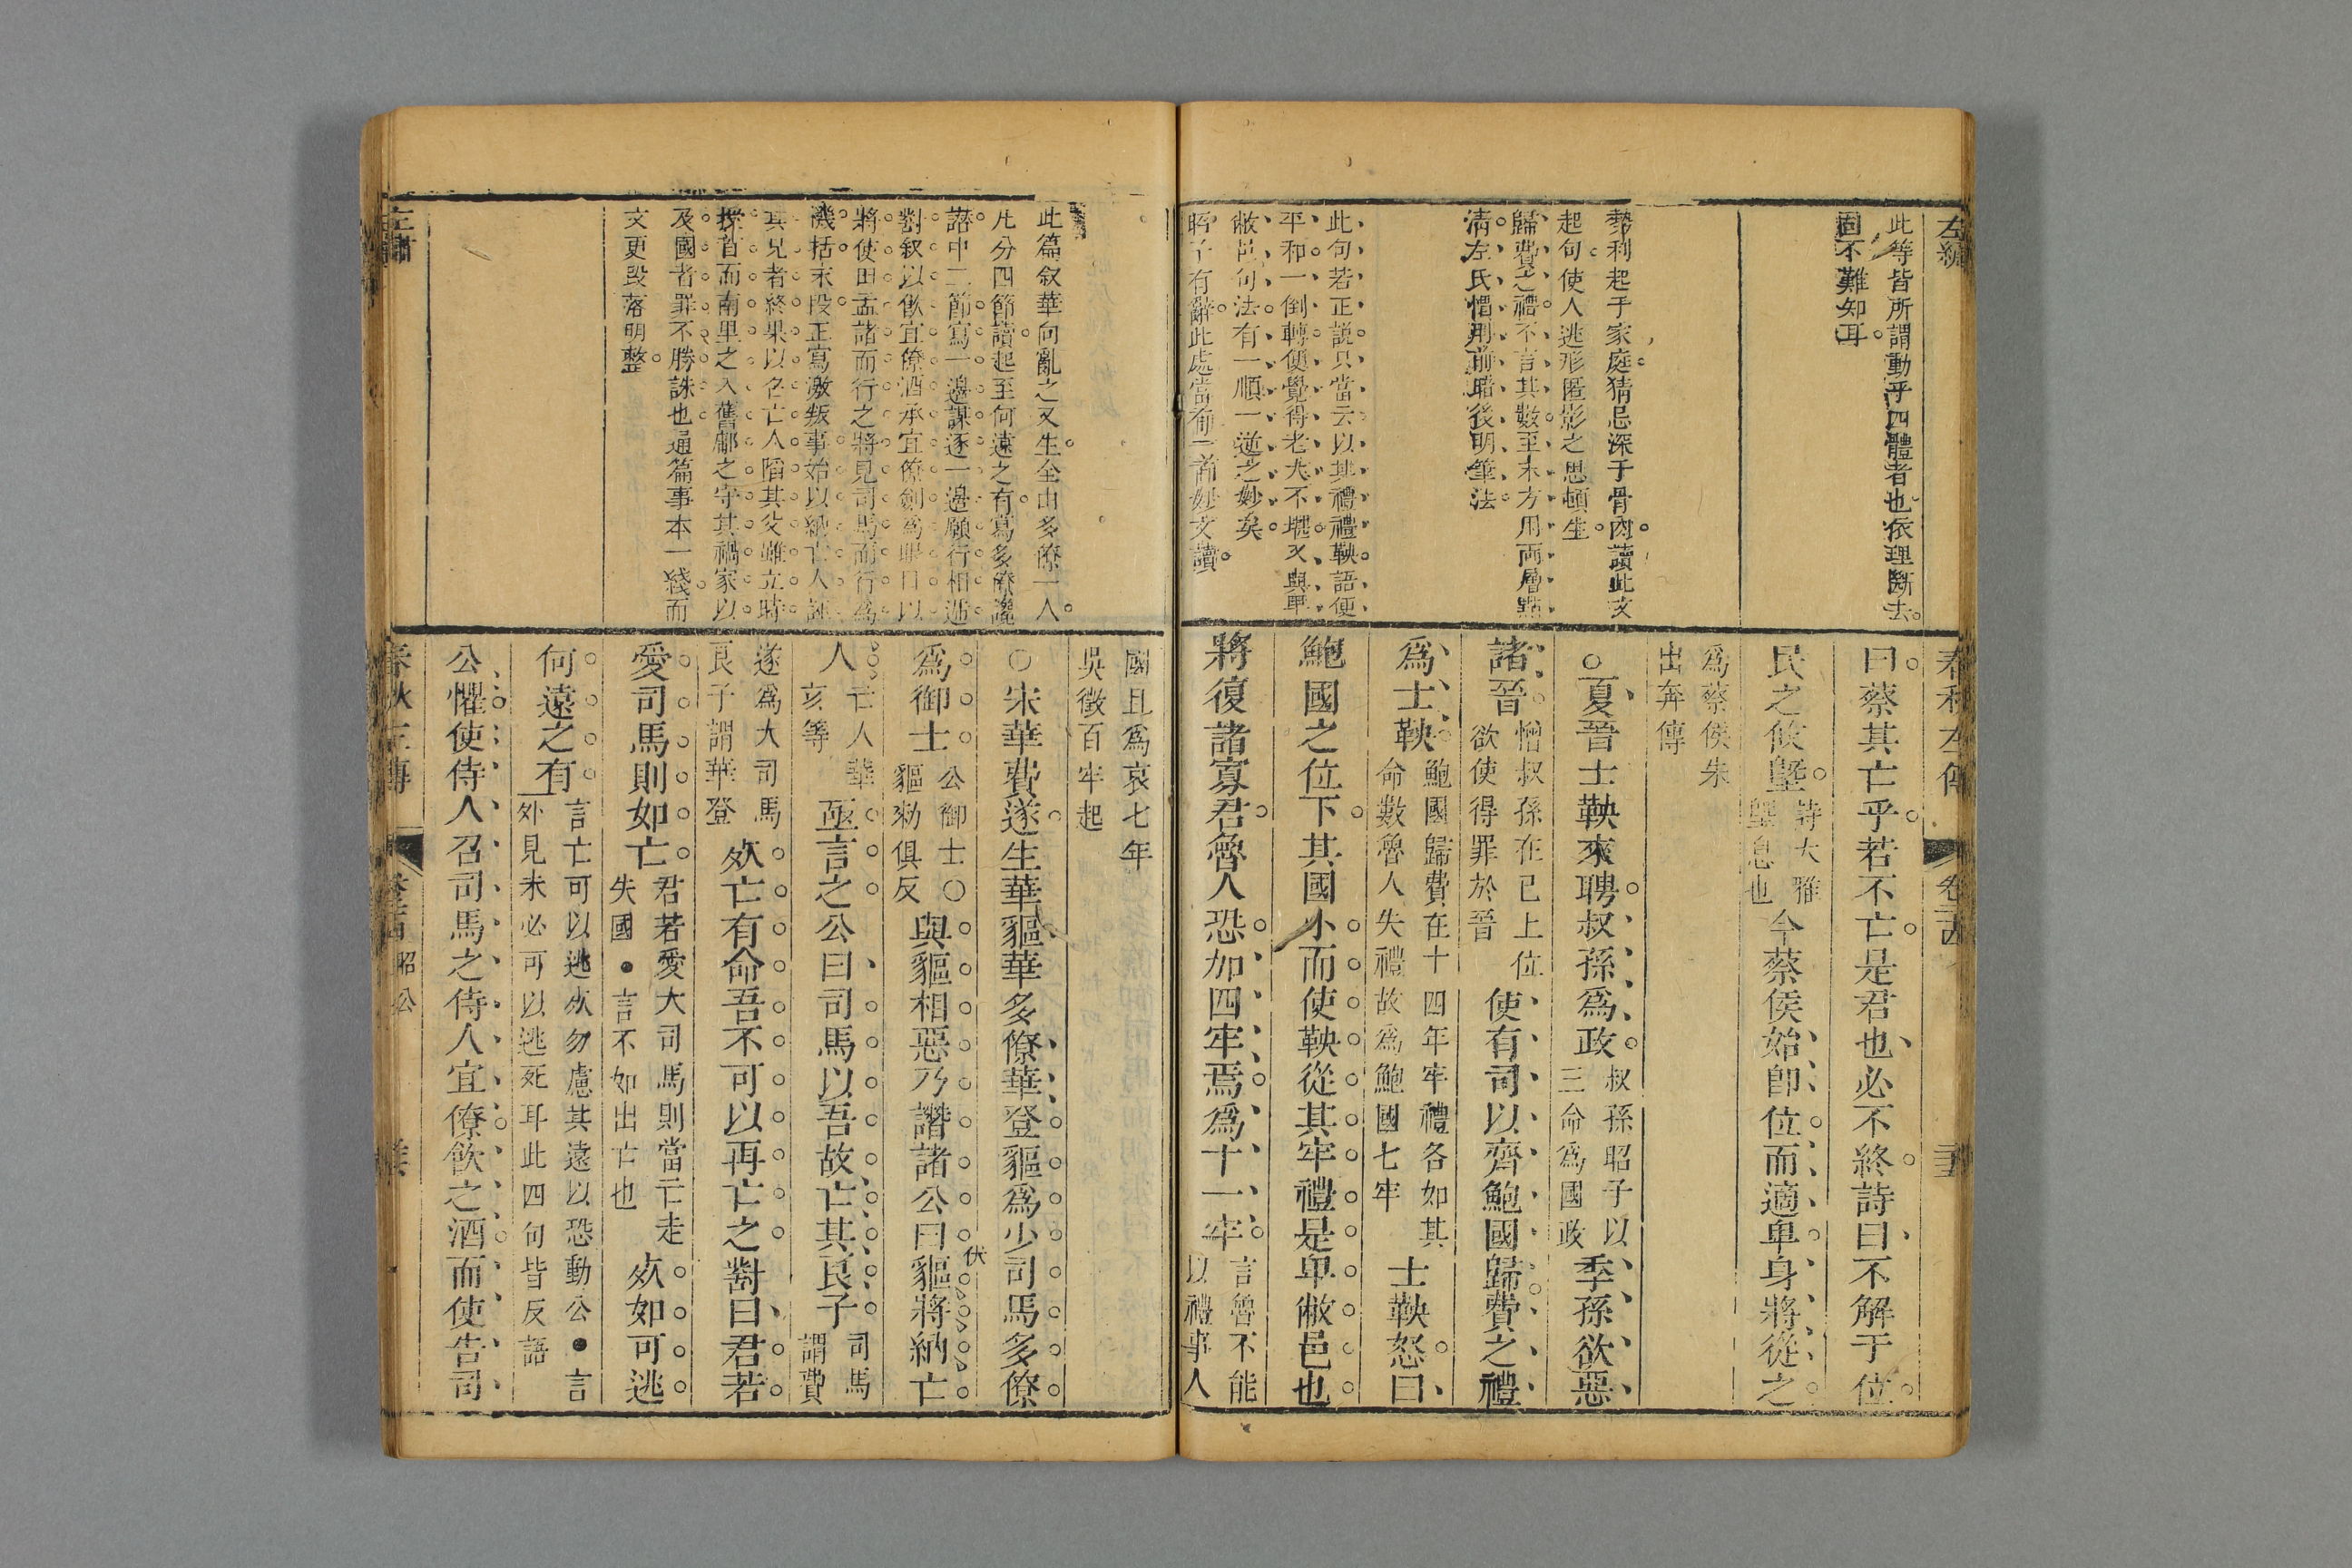 左繡
此等皆所謂動乎四體者也依理斷去
固不難知耳
勢利起于家庭猜忌深于骨肉讀此文
起句使人逃形匿影之思頓生
歸費之禮不言其數至末方用兩層點
清左氏慣用前暗後明筆法
此句若正說只當云以其禮禮鞅語便
平和一倒轉便覺得老大不堪又與畢
敝邑句法有一順一逆之妙矣
昭子有辭此處當有一首妙文讀
春秋左傳
卷二十四
曰蔡其亡乎若不亡是君也必不終詩曰不解于位
民之攸塈
詩大雅
塈息也
今蔡侯始卽位而適卑身將從之
爲蔡侯朱
出奔傳
○夏晉士鞅來聘叔孫爲政
叔孫昭子以
三命爲國政
季孫欲惡
諸晉
憎叔孫在己上位
欲使得罪於晉
使有司以齊鮑國歸費之禮
爲士鞅
鮑國歸費在十四年牢禮各如其
命數魯人失禮故爲鮑國七牢
士鞅怒曰
鮑國之位下其國小而使鞅從其牢禮是卑敝邑也
將復諸寡君魯人恐加四牢焉爲十一牢
言魯不能
以禮事人
此篇叙華向亂之又生全由多僚一人
凡分四節讀起至何遠之有寫多僚讒
譖中二節寫一邊謀逐一邊願行相遞
對叙以飲宜僚酒承宜僚劍爲眼目以
將使田孟諸而行之將見司馬而行爲
機括末段正寫激叛事始以納亡人誣
其兄者終果以名亡人陷其父雖立時
授首而南里之入舊鄘之守其禍家以
及國者罪不勝誅也通篇事本一綫而
文更段落明整
國且爲哀七年
吳徵百牢起
○宋華費遂生華貙華多僚華登貙爲少司馬多僚
爲御士
公御士○
貙勑俱反
與貙相惡乃譖諸公曰貙將納亡
伏
人
亡人華
亥等
亟言之公曰司馬以吾故亡其良子
司馬
謂費
遂爲大司馬
良子謂華登
死亡有命吾不可以再亡之對曰君若
愛司馬則如亡
君若愛大司馬則當亡走
失國●言不如出亡也
死如可逃
何遠之有
言亡可以逃死勿慮其遠以恐動公●言
外見未必可以逃死耳此四句皆反語
公懼使侍人召司馬之侍人宜僚飲之酒而使告司
左繡
春秋左傳
昭公